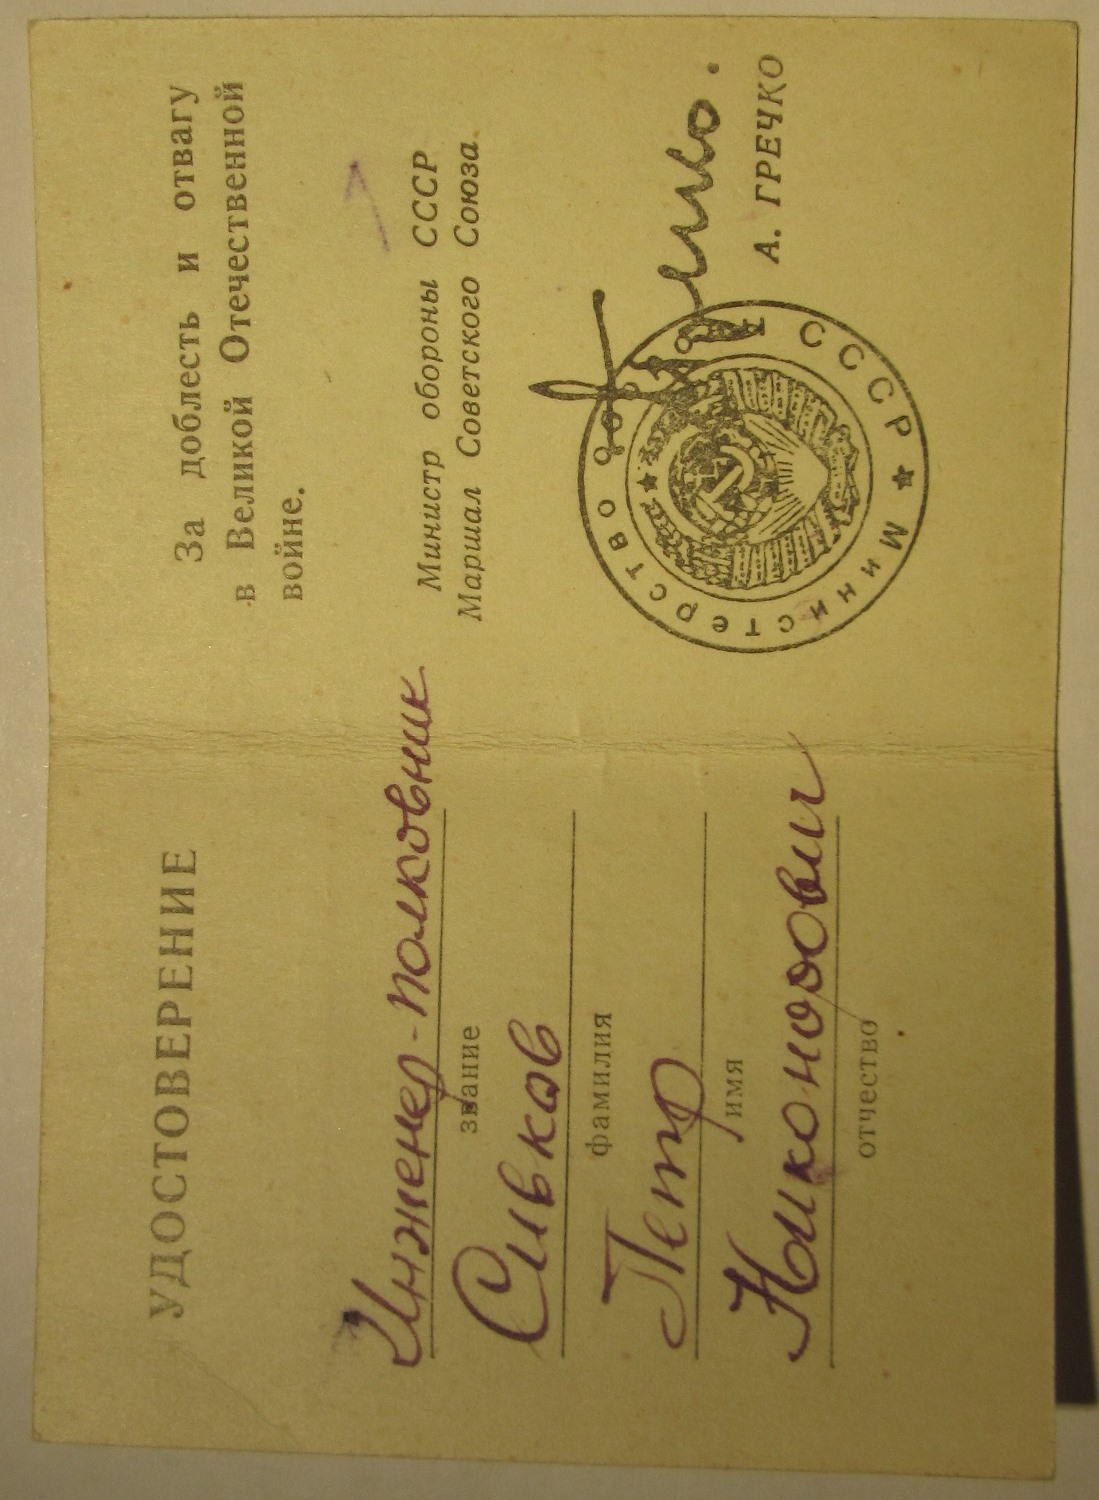 УДОСТОВЕРЕНИЕ
Инженер-полковник
звание
Сивков
фамилия
Петр
имя
Никонорович
отчество
За доблесть и отвагу
в Великой Отечественной
войне.
Министр обороны СССР
Маршал Советского Союза
А. ГРЕЧКО
Министерство обороны СССР